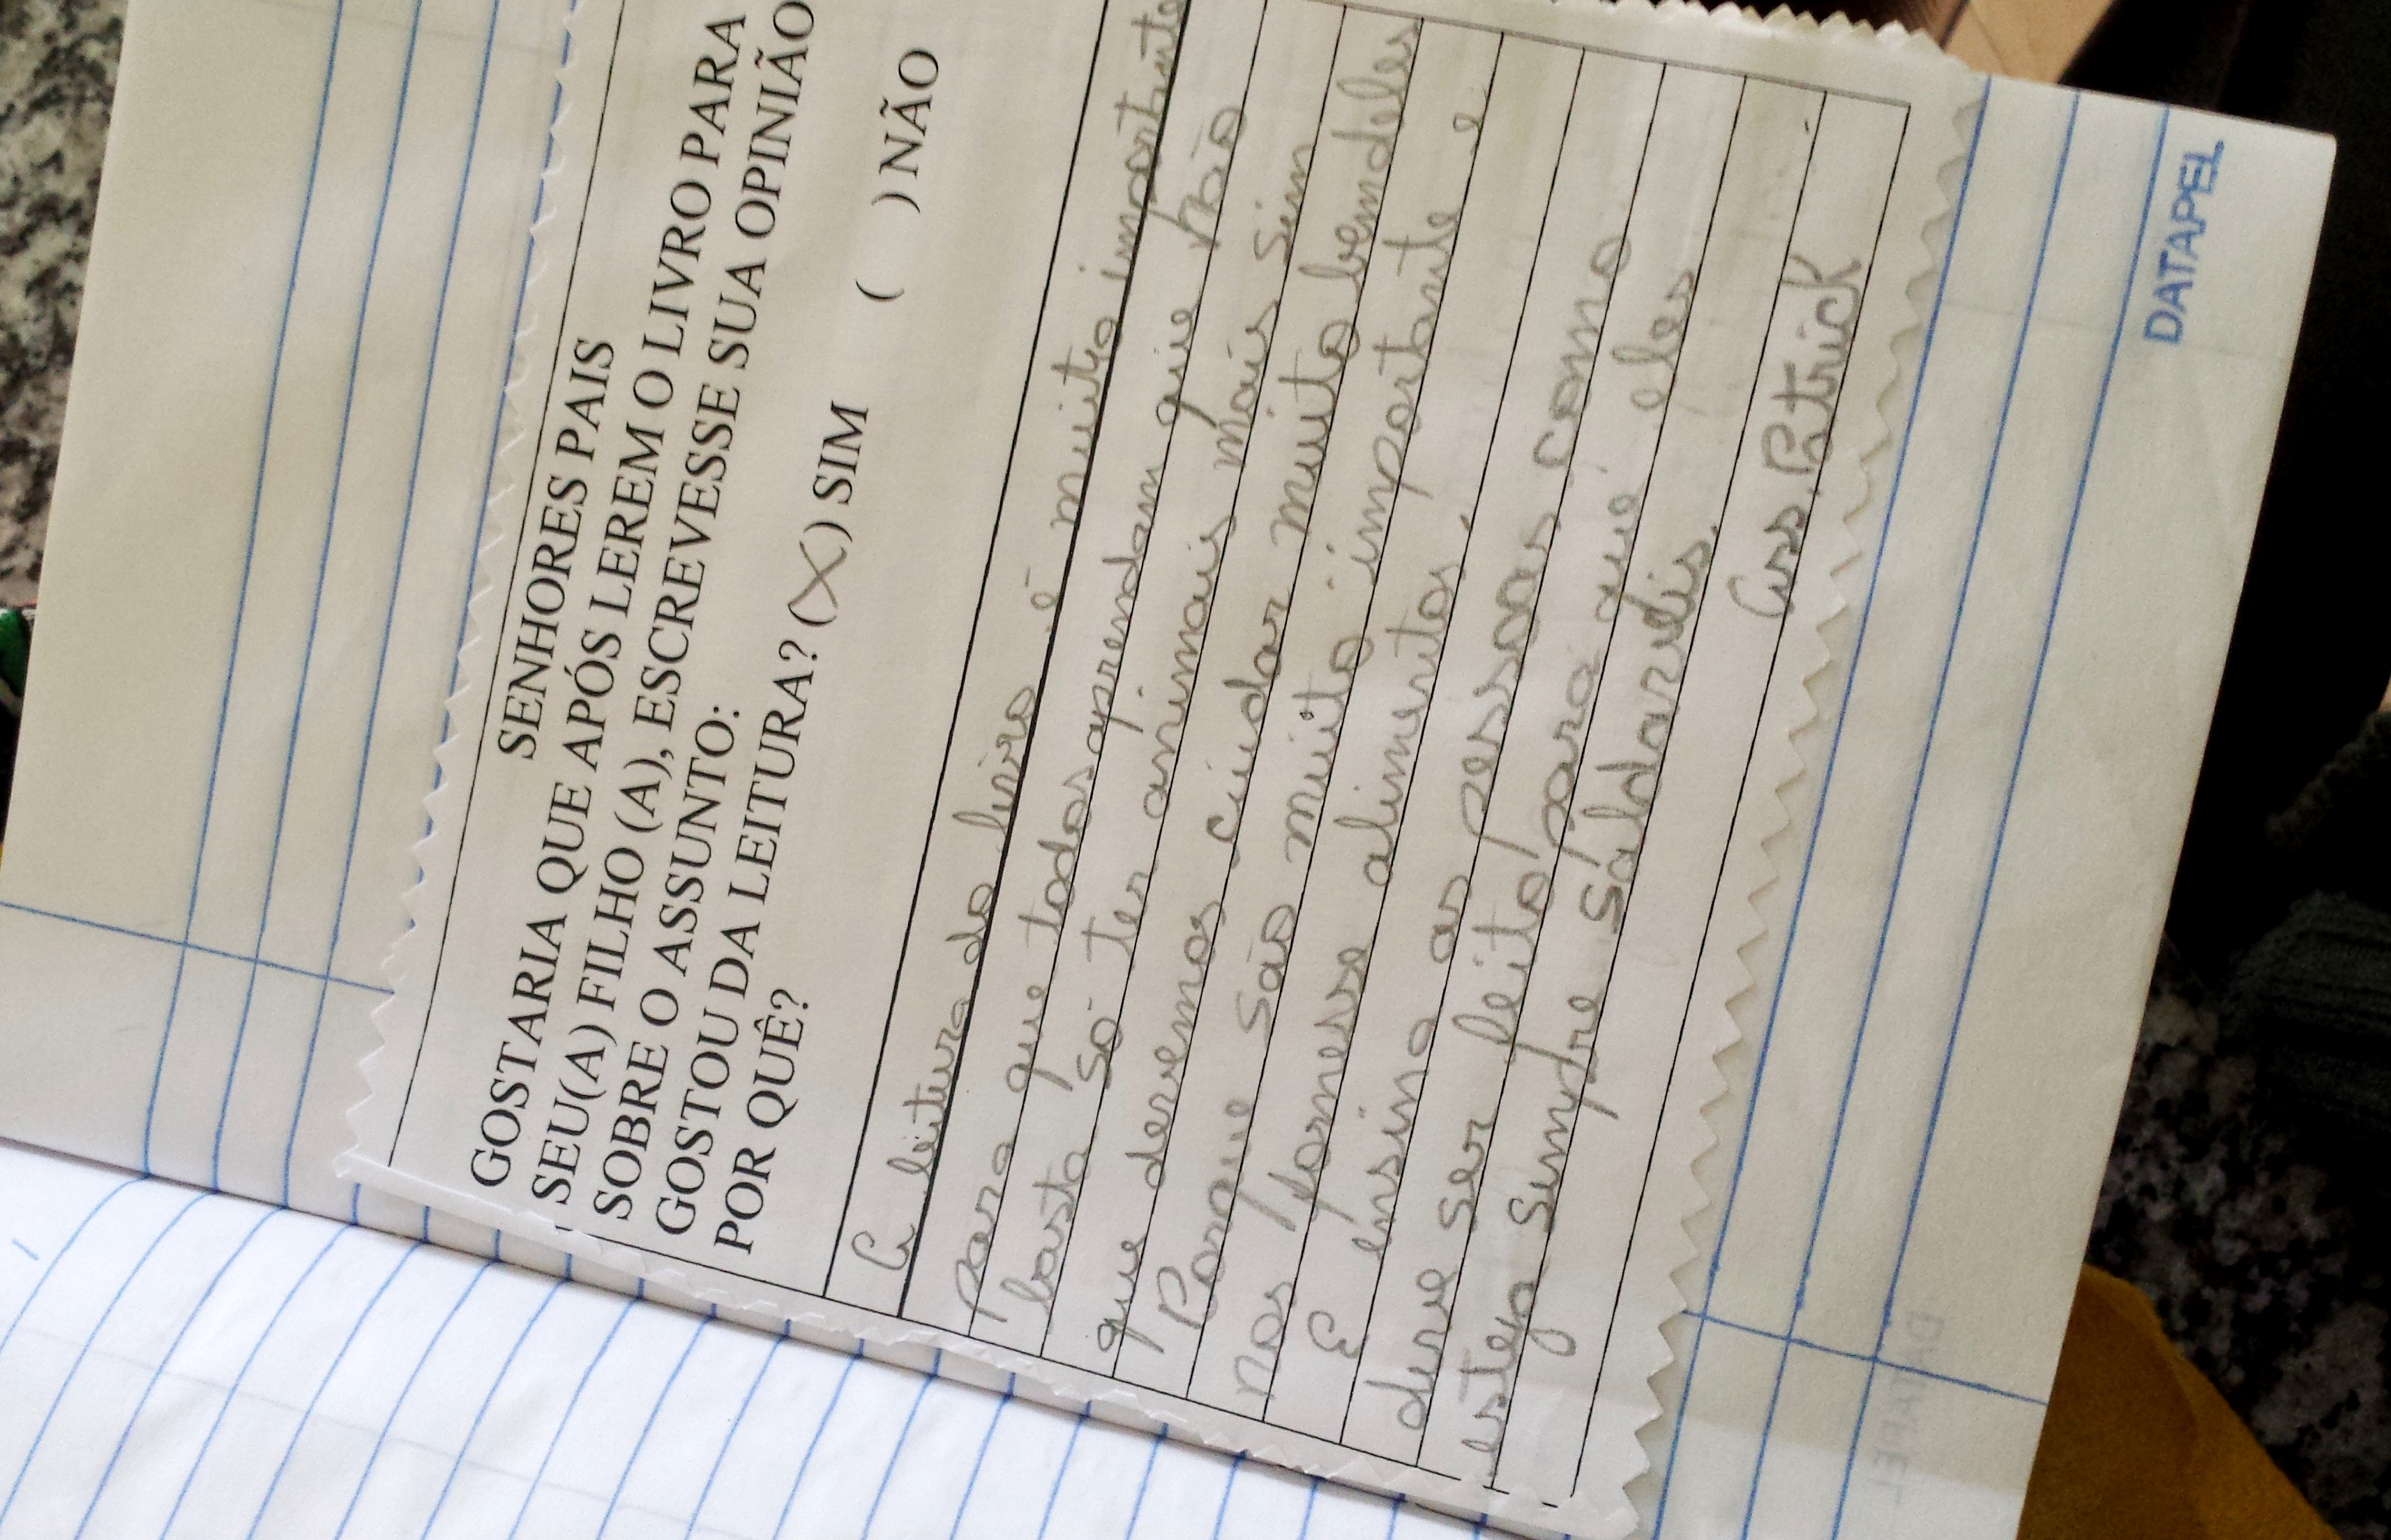 SENHORES PAIS
GOSTARIA QUE APÓS LEREM O LIVRO PARA
SEU(A) FILHO (A), ESCREVESSE SUA OPINIÃO
SOBRE O ASSUNTO:
GOSTOU DA LEITURA? (X) SIM ( ) NÃO
POR QUÊ?
A leitura do livro é muito importante
para que todos aprendam que não
basta só ter animais mais sim
que devemos cuidar muito bem deles
Porque são muito importante e
nos fornesse alimentos,
E ensina as pessoas como
deve ser feito para que eles
esteja sempre saldavéis.
Ass. Patrick
DATAPEL